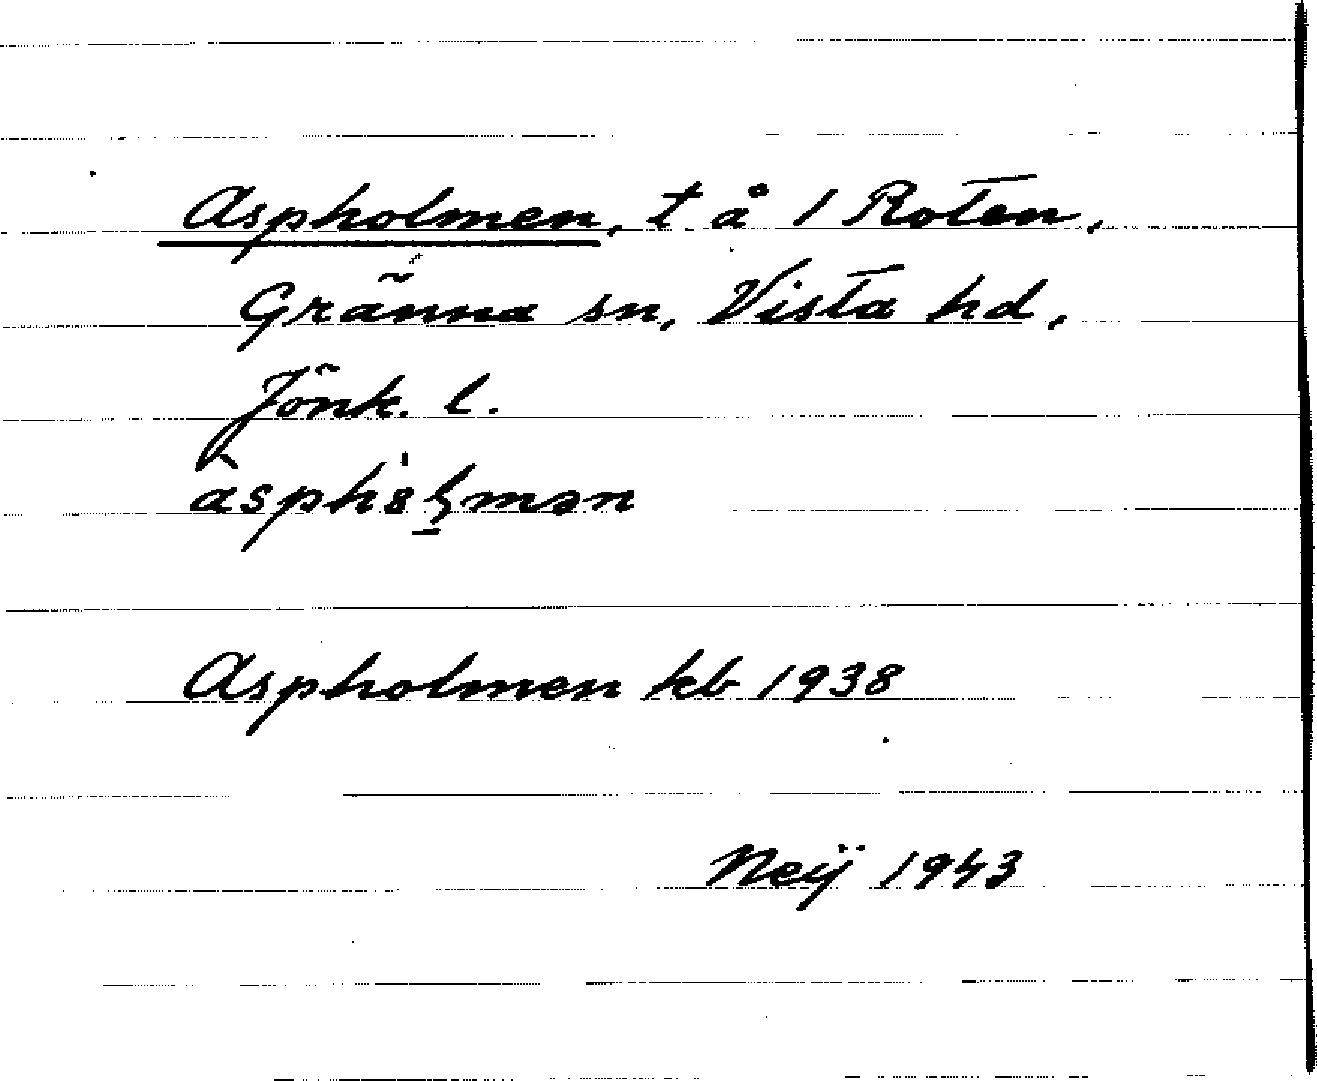 Aspholmen, t å 1 Roten,
Gränna sn, Vista hd,
Jönk. l.
Aspholmen kb 1938
Neij 1943